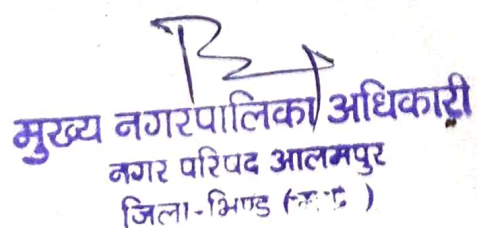 मुख्य नगरपालिका अधिकारी
नगर परिषद आलमपुर
जिला-भिण्ड